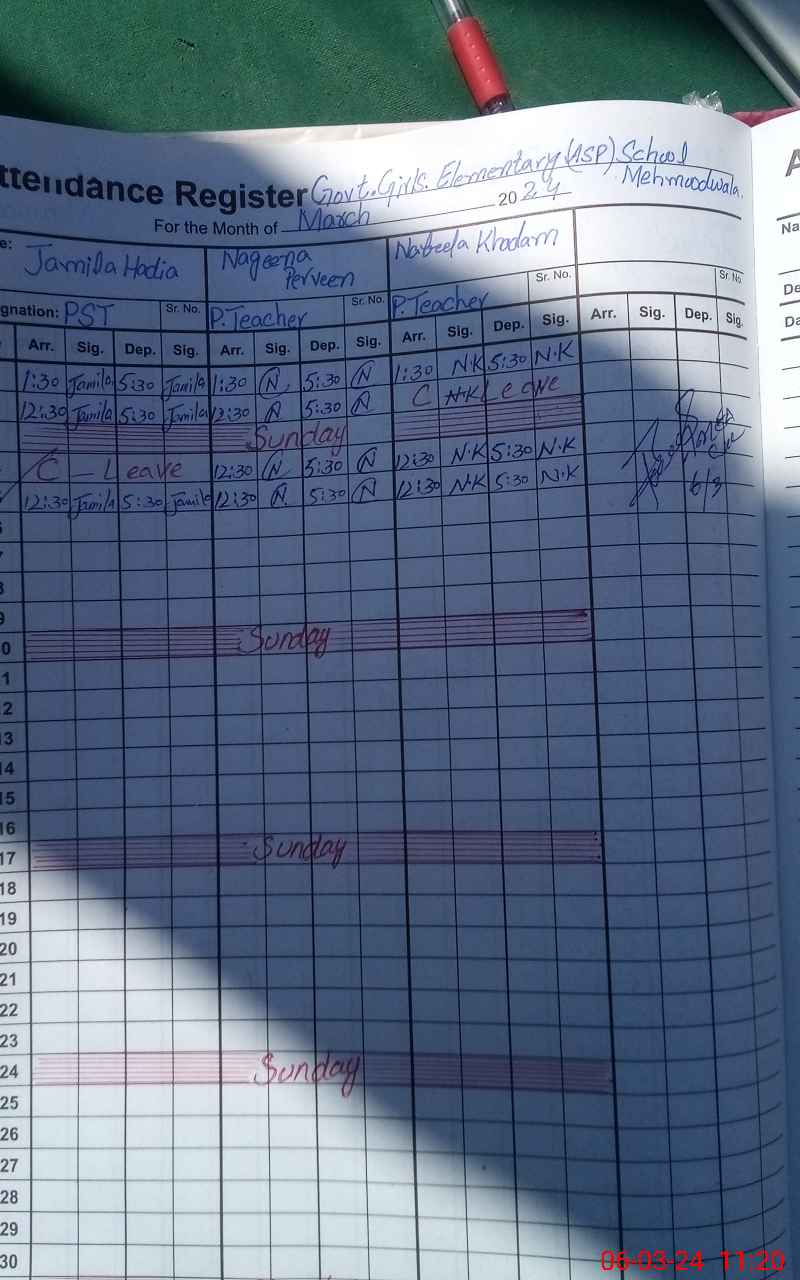 ttendance Register Govt. Girls. Elementary (ASP) School
Mehmoodwala.
For the Month of March 2024
e: Jamila Hadia Nageena Perveen Nabeela Khadam
Sr. No. Sr. No. Sr. No. Sr. No.
gnation: PST P. Teacher P. Teacher
Arr. Sig. Dep. Sig. Arr. Sig. Dep. Sig. Arr. Sig. Dep. Sig. Arr. Sig. Dep. Sig.
1:30 Jamila 5:30 Jamila 1:30 N 5:30 N 1:30 N.K 5:30 N.K
12:30 Jamila 5:30 Jamila 12:30 N 5:30 N C N.K Leave
Sunday
C - Leave 12:30 N 5:30 N 12:30 N.K 5:30 N.K
12:30 Jamila 5:30 Jamila 12:30 N 5:30 N 12:30 N.K 5:30 N.K
6/3
7
8
9
0 Sunday
1
2
13
14
15
16
17 Sunday
18
19
20
21
22
23
24 Sunday
25
26
27
28
29
30
A
Na
De
Da
06-03-24 11:20